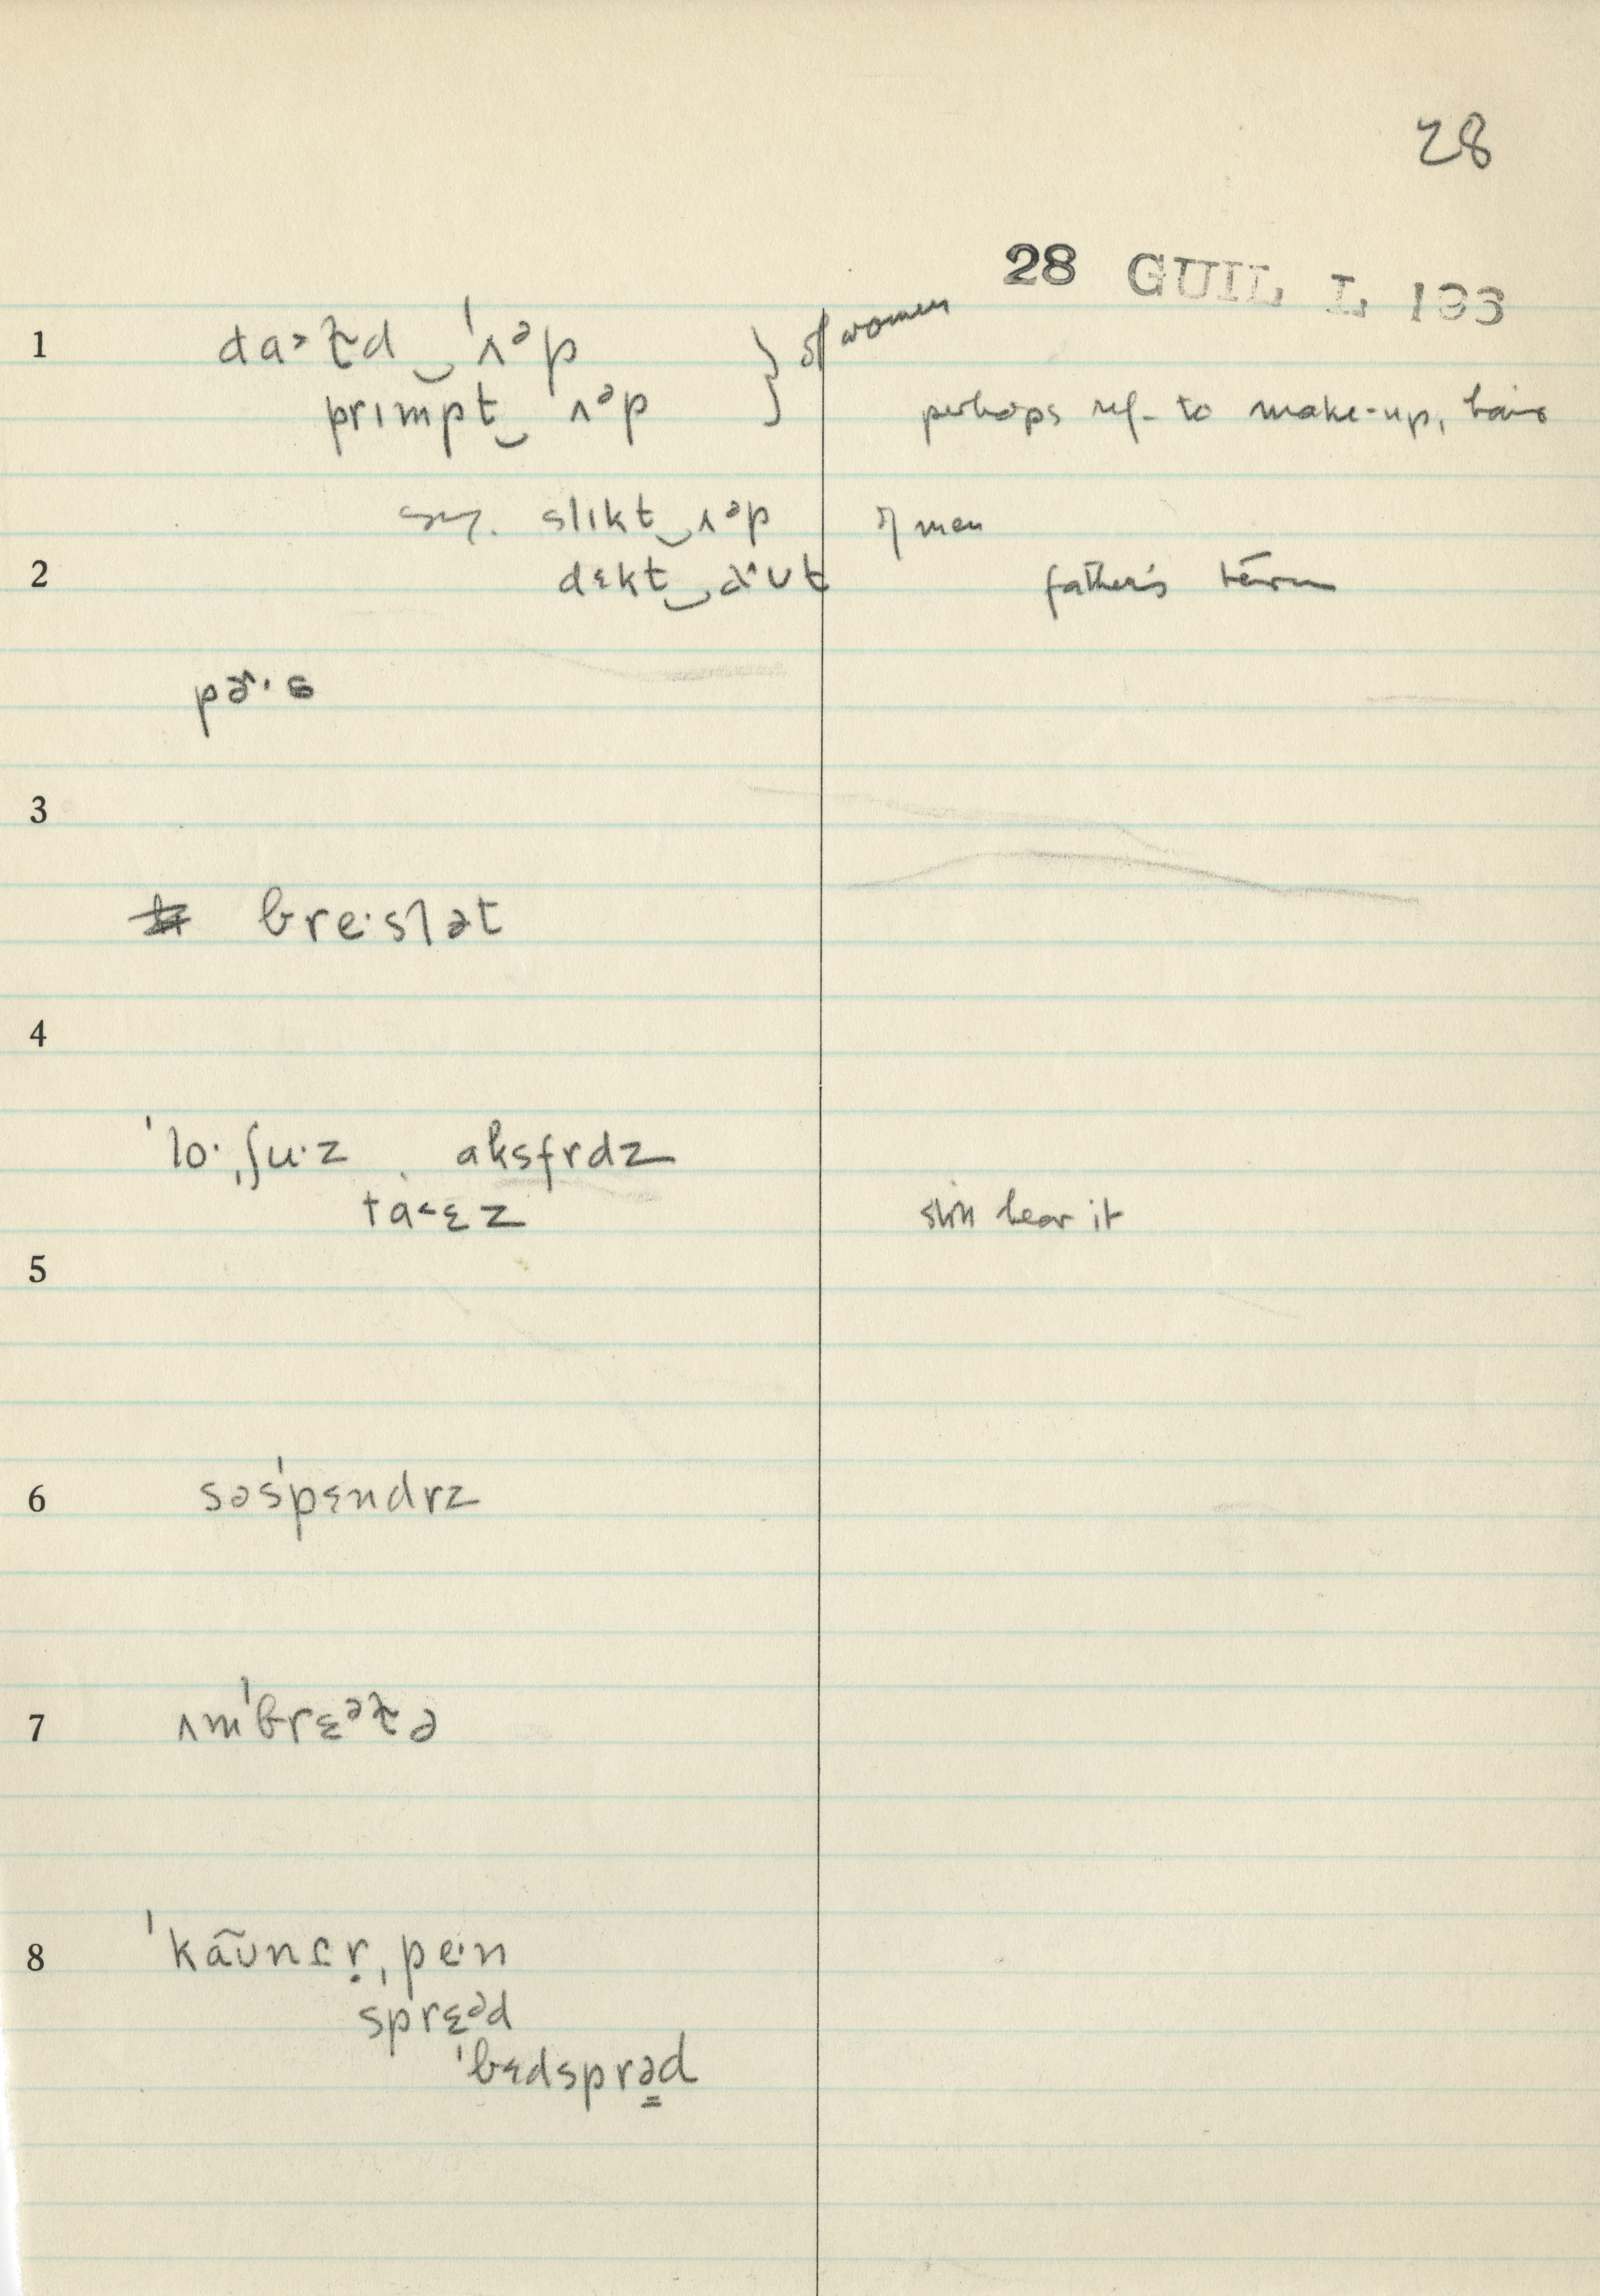 28
28 GUIL L 133
1 da˃t̬d‿ˈʌᵊp } of women
prɪmpt‿ ʌᵊp perhaps ref. to make-up, hair
sy. slɪkt‿ʌᵊp of men
2 dɛkt‿ɑʊt father's term
pɚ·s
3
bre·slət
4
ˈlo·ˌʃu·z aksfrdz
ta˂ɛz still hear it
5
6 səsˈpɛndrz
7 ʌmˈbrɛᵊt̬ə
8 ˈkãʊnɛṛˌpe·n
sprɛᵊd
ˈbɛdsprə̳d